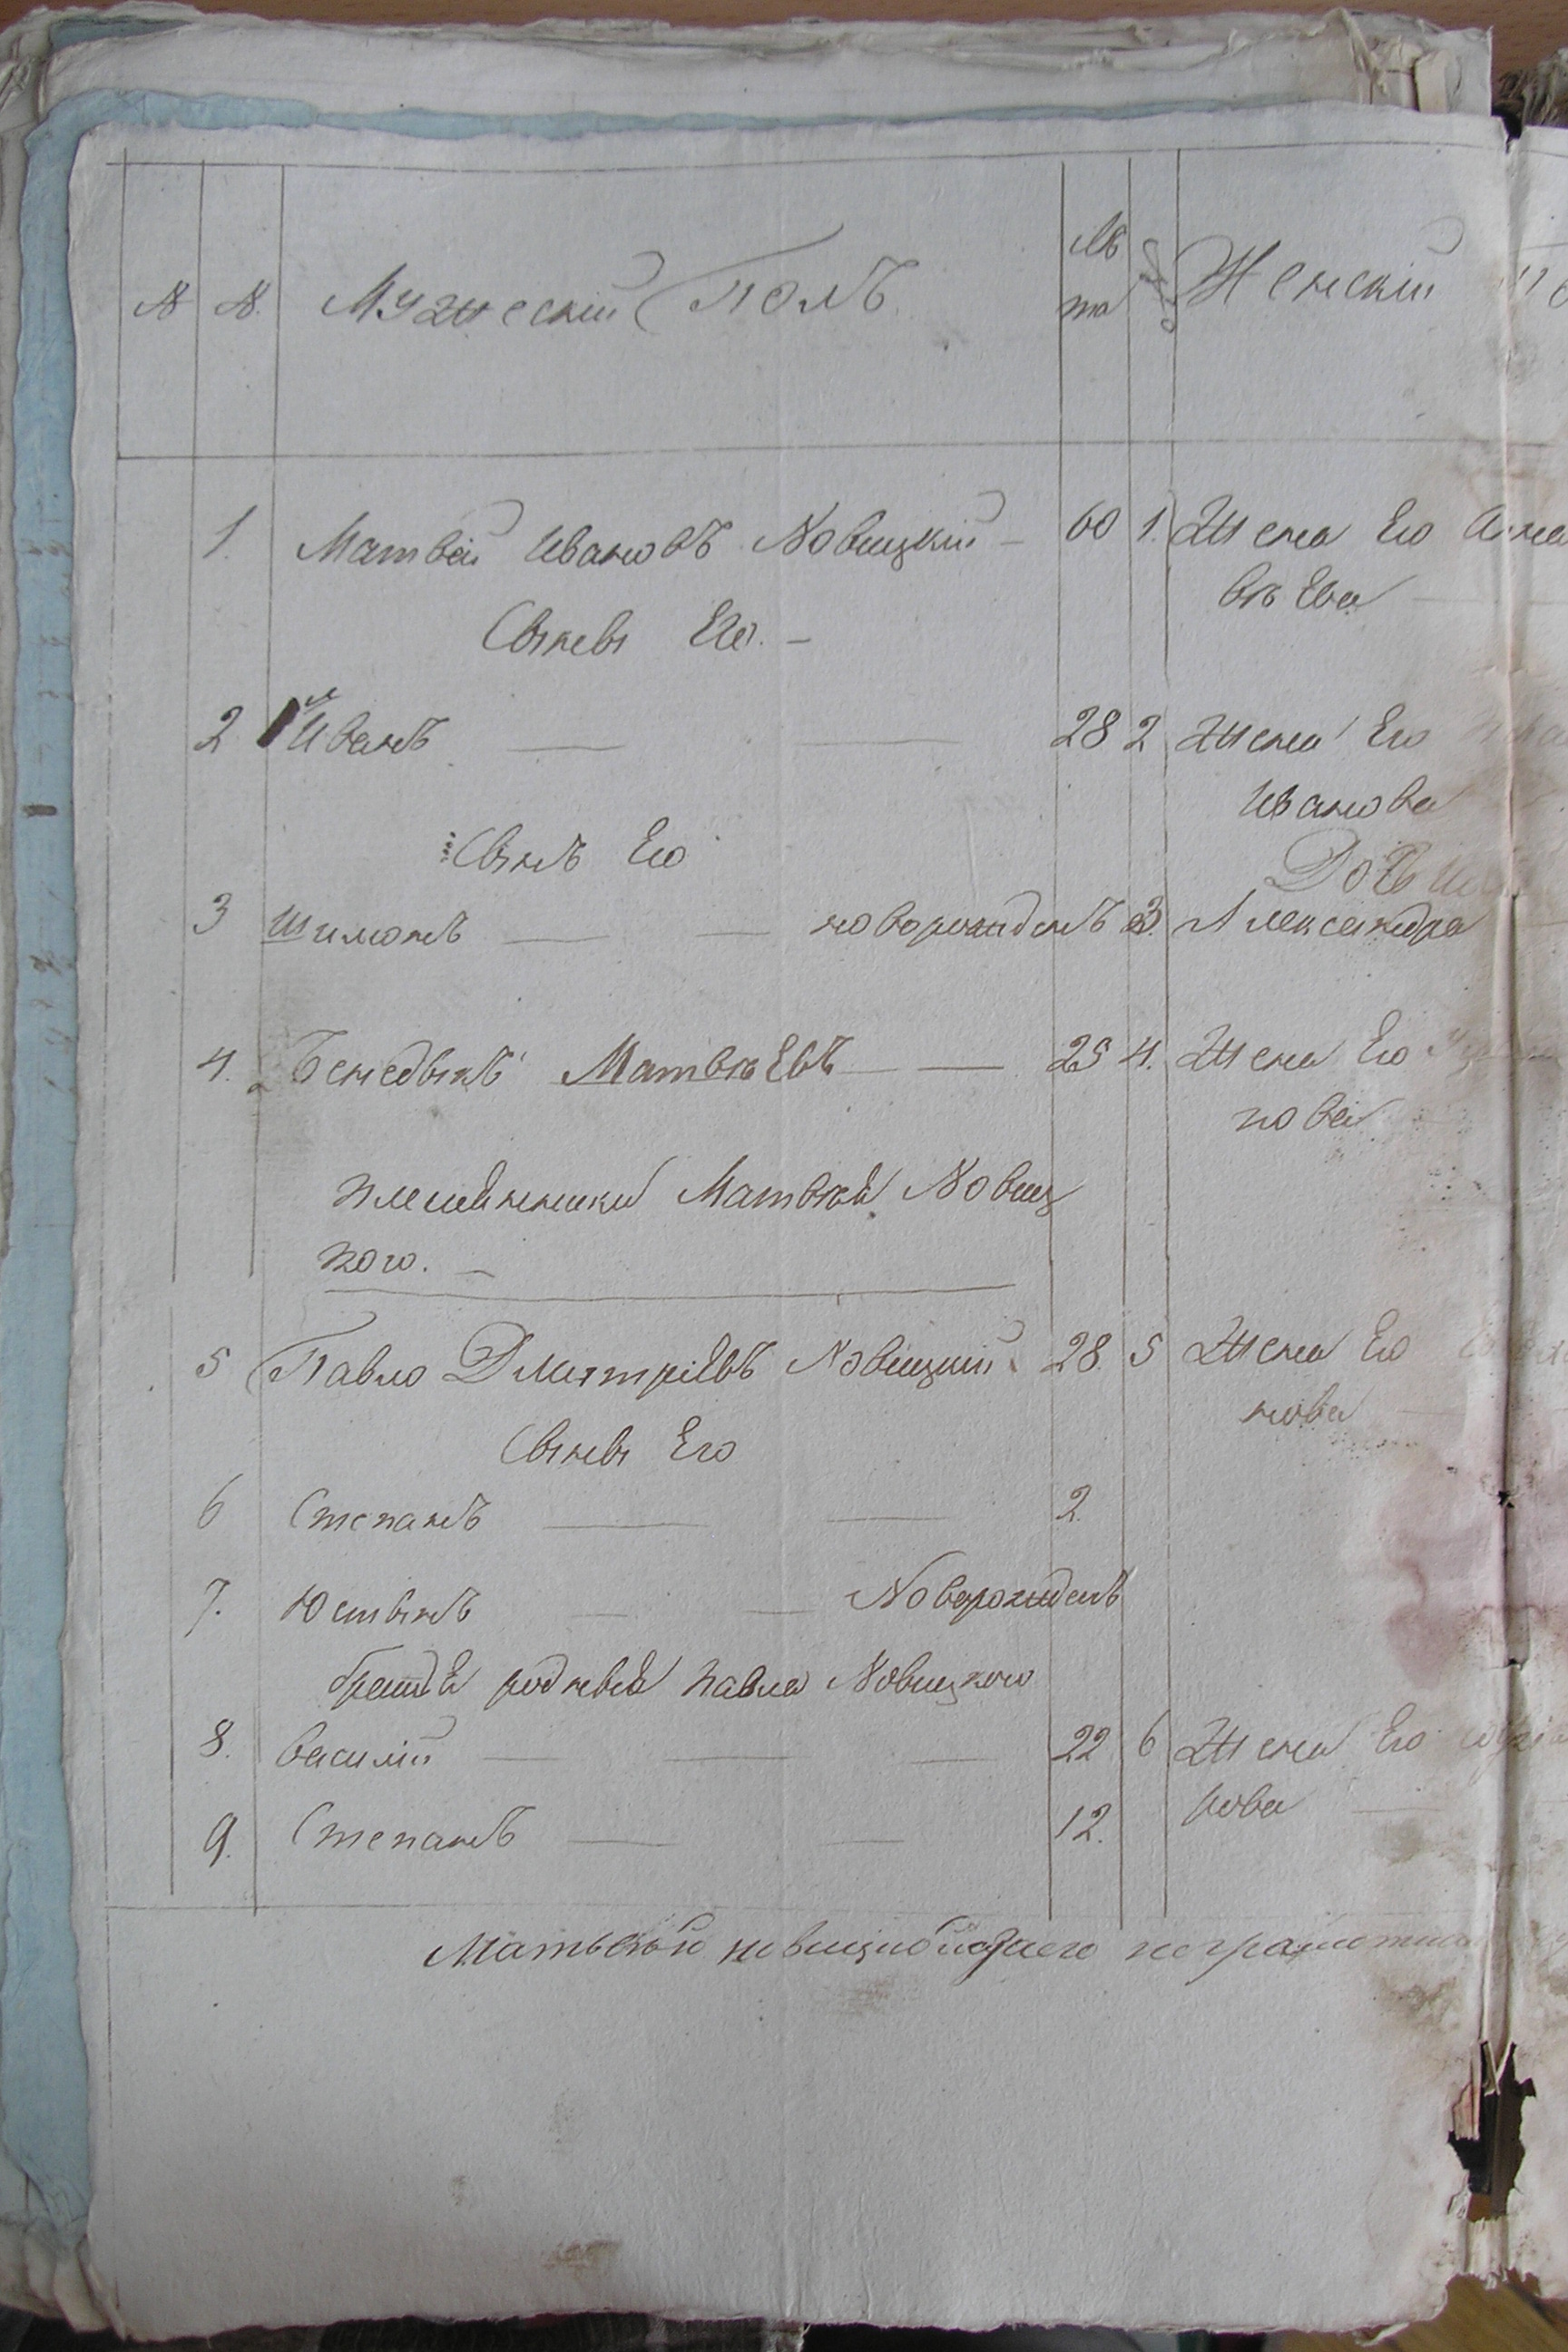 N N. Мужескій Полъ Лѣ та Женскій
1. Матвѣй Ивановъ Новицкій – 60 1. Жена Его Анна
вѣева
Сыны Его. –
2 1й Иванъ 28 2 Жена Его
Иванова
Сынъ Его
Дочь
3 Шимонъ новорожденъ 3. Александра
4. 2 Бенедыктъ Матвѣевъ 25 4. Жена Его
пова
племянники Матвѣя Новиц
кого. –
5 Павло Дмытріевъ Новицкий 28. 5 Жена Его
нова
Сыны Его
6 Степанъ 2.
7. Юстынъ Новорожденъ
братья родныя Павла Новицкого
8. Василій 22 6 Жена Его
нова
9. Степанъ 12.